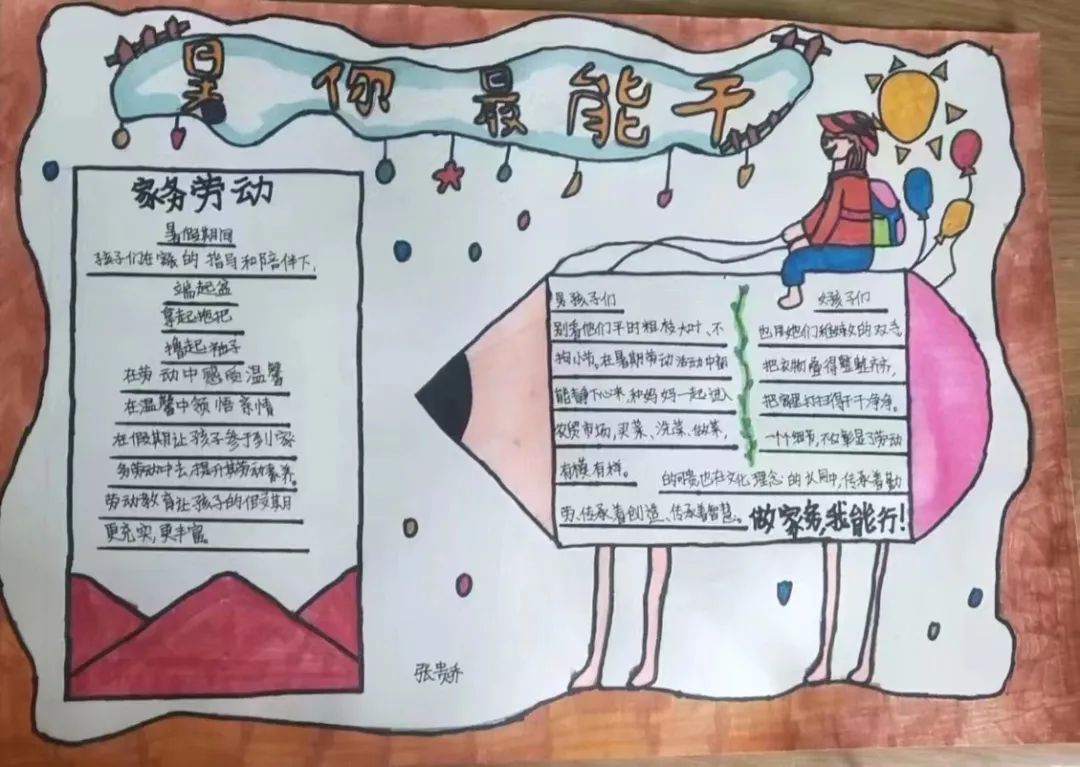 暑你最能干
家务劳动
暑假期间
孩子们在家长的指导和陪伴下,
端起盆
拿起拖把
撸起袖子
在劳动中感受温馨
在温馨中领悟亲情
在假期让孩子参于到家
务劳动中去,提升其劳动素养。
劳动教育让孩子的假期
更充实,更丰富。
男孩子们
别看他们平时粗枝大叶、不
拘小节。在暑期劳动活动中都
能静下心来,和妈妈一起进入
农贸市场,买菜、洗菜、做菜,
有模有样。
女孩子们
也用她们细嫩的双手
把衣物叠得整整齐齐,
把家里打扫得干干净净。
一个个细节,不仅彰显了劳动
的可贵也在文化理念的认同中,传承着勤
劳、传承着创造、传承着智慧。
做家务,我能行!
张贵乔